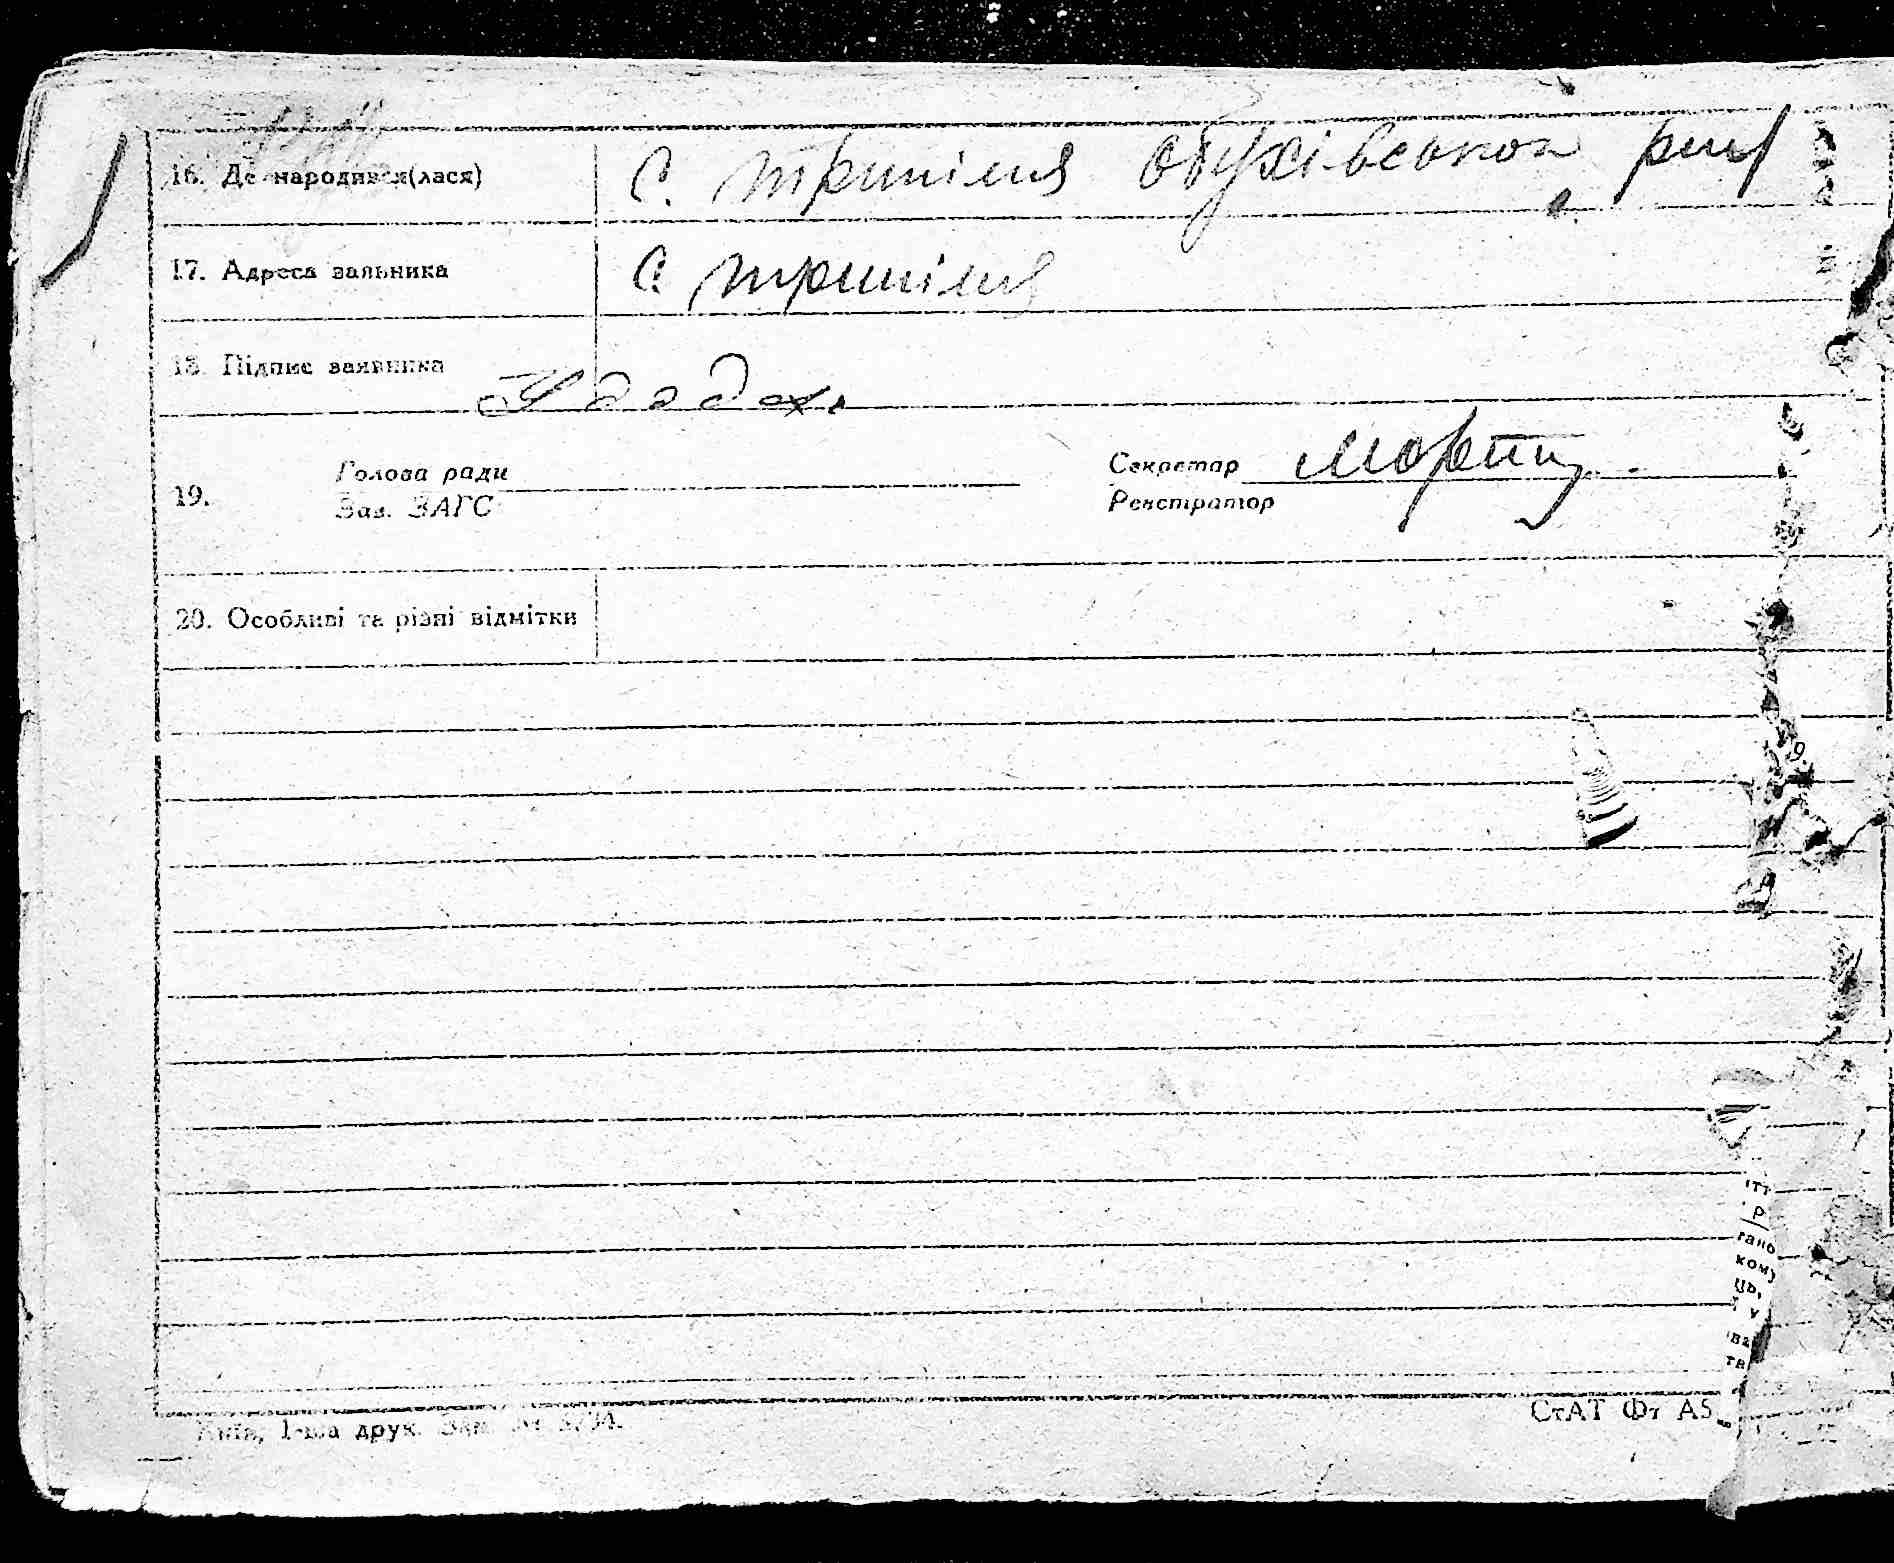 16. Де народився(лася) с. Трипілля Обухівського р-ну
17. Адреса заявника с. Трипілля
18. Підпис заявника
19. Голова ради Секретар
Зав. ЗАГС Реєстратор
20. Особливі та різні відмітки
Київ, 1-ша друк. Зам.
СтАТ Фт А5
гано
кому
ць,
у
ва
та